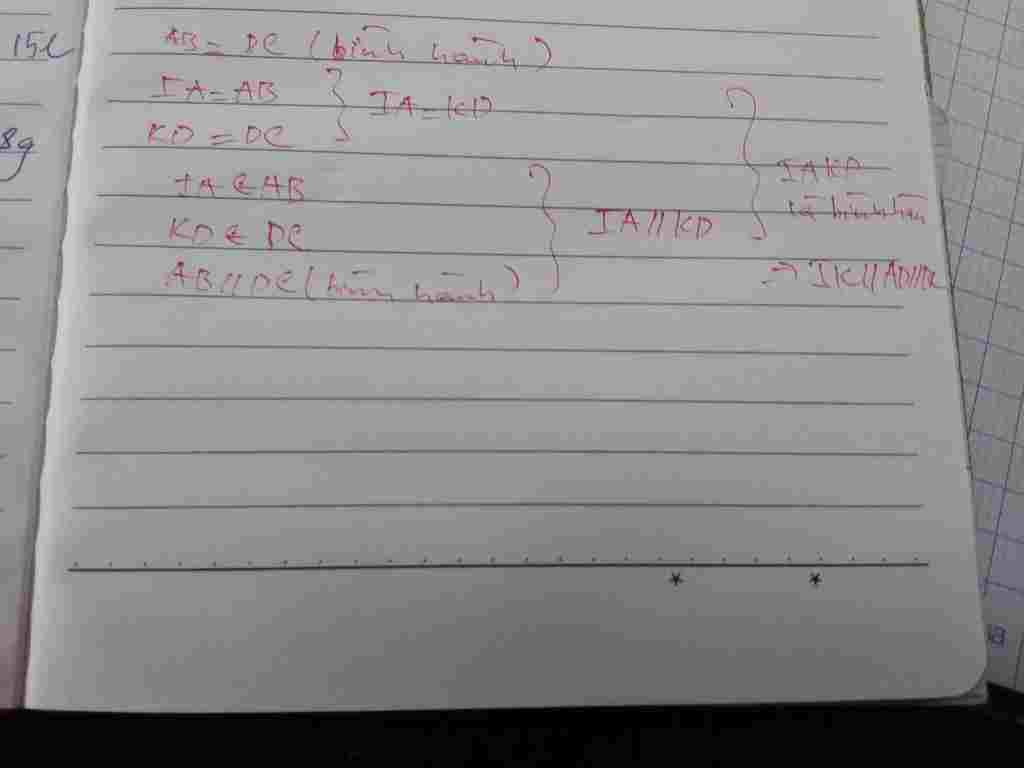 15l
8g
AB = DC (bình hành)
IA = AB
KD = DC
IA = KD
IA ∈ AB
KD ∈ DC
AB // DC (bình hành)
IA // KD
IAKD
là bình hành
→ IK // AD //